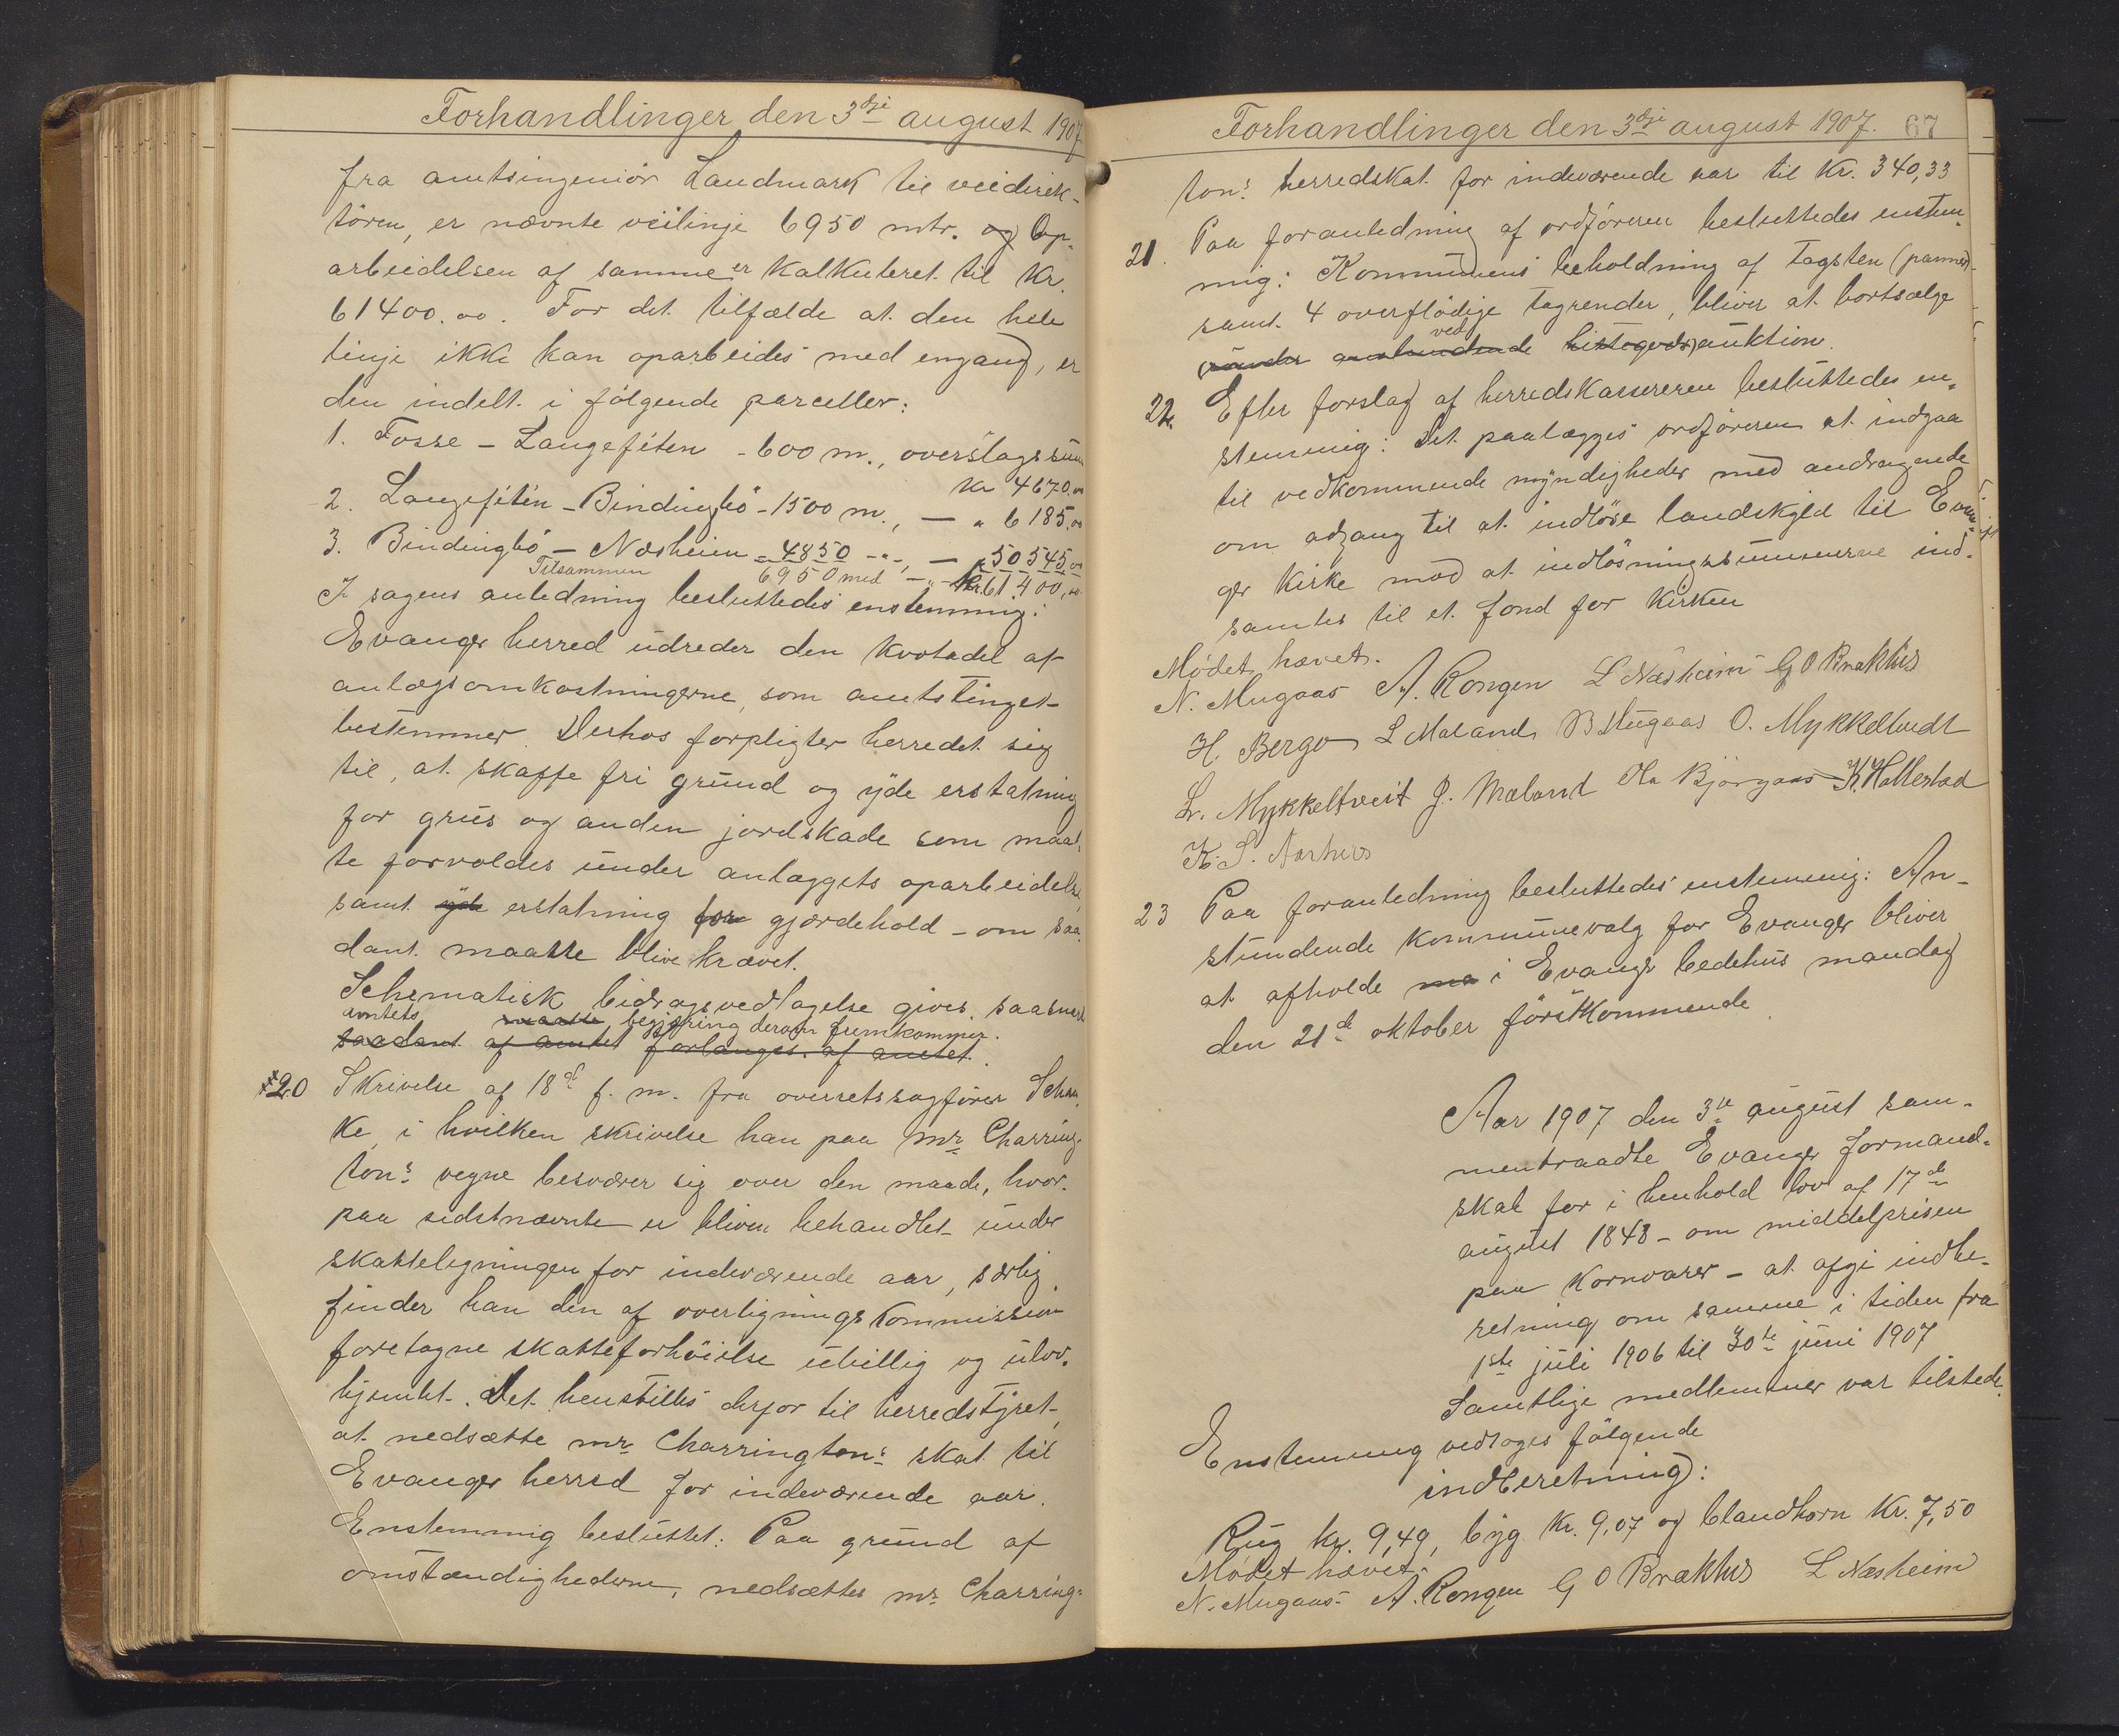 Forhandlinger den 3dje august 1907
fra amtsingeniør Landmark til veidirek-
tören, er nævnte veilinje 6950 mtr. og Op-
arbeidelsen af samme er kalkuleret til kr.
61400.00. For det tilfælde at den hele
linje ikke kan oparbeides med engang, er
den indelt i følgende parceller:
1. Fosse - Langefiten - 600 m., overslagssum
kr 4670.00
2. Langefiten - Bindingbö - 1500 m., — " 6185.00
3. Bindingbö - Næsheim - 4850 -"-, — " 50545,00
Tilsammen 6950 med -"- kr. 61400,00
I sagens anledning besluttedes enstemmig:
Evanger herred udreder den kvotadel af
anlægsomkostningerne, som amtstinget
bestemmer. Derhos forpligter herredet sig
til, at skaffe fri grund og yde erstatning
for grus og anden jordskade som maat-
te forvoldes under anlæggets oparbeidelse,
samt yde erstatning for gjærdehold - om saa-
dant maatte blive krævet.
Schematisk bidragsvedtagelse gives, saasnart
amtets maatte begjæring derom fremkommer.
saadant af amtet forlanges af amtet.
20 Skrivelse af 18de f. m. fra overretssagfører Schan-
ke, i hvilken skrivelse han paa mr Charring-
tons vegne besværer sig over den maade, hvor-
paa sidstnævnte er bleven behandlet under
skatteligningen for indeværende aar, særlig
finder han den af overligningskommission
foretagne skatteforhöielse ubillig og ulov-
hjemlet. Det henstilles derfor til herredstyret,
at nedsætte mr Charringtons skat til
Evanger herred for indeværende aar.
Enstemmig besluttet: Paa grund af
omstændighederne, nedsættes mr Charring-
Forhandlinger den 3dje august 1907. 67
tons herredskat for indeværende aar til kr. 340,33
21. Paa foranledning af ordföreren besluttedes enstem-
mig: Kommunens beholdning af tagsten (panner)
samt 4 overflödige tagrender, bliver at bortsælge
ved
under anstundende auktion.
22. Efter forslag af herredskassereren besluttedes en-
stemmig: Det paalægges ordföreren at indgaa
til vedkommende myndigheder med andragende
om adgang til at indlöse landskyld til Evan-
ger kirke mod at indlösningssummerne ind-
samles til et fond for kirken
Mødet hævet.
N. Mugaas A. Rongen L Næsheim G O Brækhus
H. Bergo L Mæland B Mugaas O. Mykkeltvedt
L. Mykkeltveit J. Mæland Ola Bjørgaas K. Hallestad
K. S. Aarhus
23 Paa foranledning besluttedes enstemmig: An-
stundende kommunevalg for Evanger bliver
at afholde ma i Evanger bedehus mandag
den 21de oktober förstkommende
Aar 1907 den 3die august sam-
mentraadte Evanger formand-
skab for i henhold lov af 17de
august 1848 - om middelprisen
paa kornvarer - at afgi indbe-
retning om samme i tiden fra
1ste juli 1906 til 30te juni 1907
Samtlige medlemmer var tilstede.
Enstemmig vedtoges følgende
indberetning:
Rug kr. 9,49, byg kr. 9,07 og blandkorn kr. 7,50
Mødet hævet.
N. Mugaas A. Rongen G O Brækhus L Næsheim